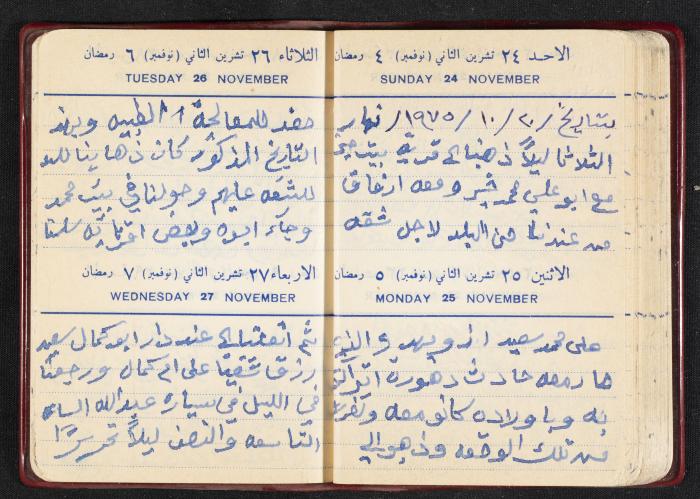 الاحد ٢٤ تشرين الثاني (نوفمبر) ٤ رمضان
SUNDAY 24 NOVEMBER
بتاريخ / ٢٠ / ١٠ / ١٩٧٥ / نهار
الثلاثا ليلاً ذهبنا الى قرية بيت
مع ابو علي محمد ومعه ارفاق
من عندنا من البلد لاجل شقه
الاثنين ٢٥ تشرين الثاني (نوفمبر) ٥ رمضان
MONDAY 25 NOVEMBER
على محمد سعيد والذي
صار معه حادث دهورة
به وباولاده كانو معه
من تلك الوقعه وذهبو الى
الثلاثاء ٢٦ تشرين الثاني (نوفمبر) ٦ رمضان
TUESDAY 26 NOVEMBER
للمعالجة الطبيه وبهذ
التاريخ المذكور كان ذهابنا للبلد
للشقه عليهم وحولنا في بيت محمد
وجاء ابوه وبعض اقربائه سلمنا
الاربعاء ٢٧ تشرين الثاني (نوفمبر) ٧ رمضان
WEDNESDAY 27 NOVEMBER
ثم انتقلنا الى عند دار ابو كمال سعيد
رزق شقينا على ام كمال ورجعنا
في الليل في سيارة عبدالله الساعه
التاسعه والنصف ليلاً تحريرًا